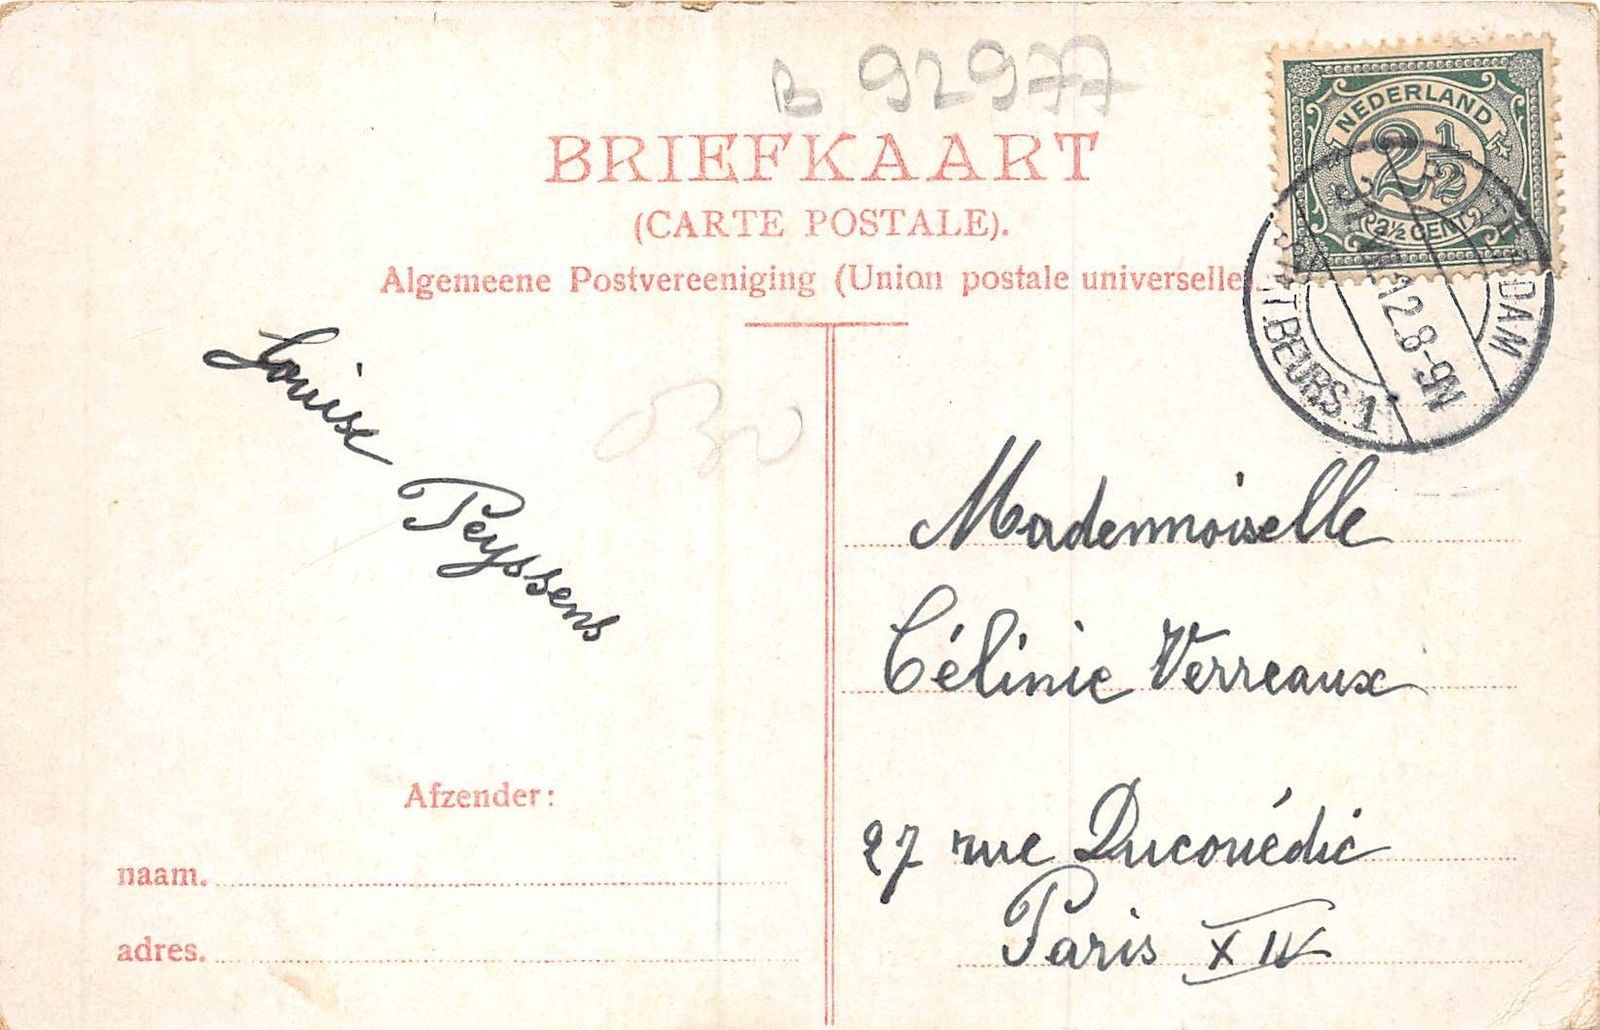 B 92977
BRIEFKAART
(CARTE POSTALE).
Algemeene Postvereeniging (Union postale universelle).
NEDERLAND
2 1/2
2½ CENT
12.8-9N
BEURS.1
Louise
Peyssens
030
Mademoiselle
Célinie Verreaux
27 rue Ducouédic
Paris XIV
Afzender:
naam.
adres.